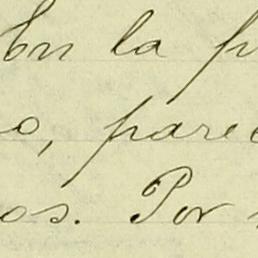 En la p
o, parec
os. Por